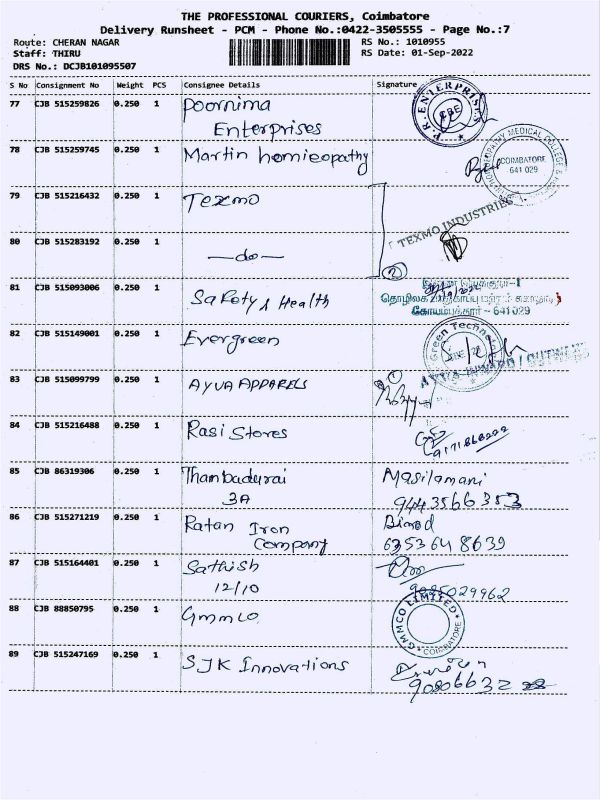 THE PROFESSIONAL COURIERS, Coimbatore
Delivery Runsheet - PCM - Phone No.:0422-3505555 - Page No.:7
Route: CHERAN NAGAR
RS No.: 1010955
Staff: THIRU
RS Date: 01-Sep-2022
DRS No.: DCJB101095507
S No Consignment No Weight PCS Consignee Details Signature
77 CJB 515259826 0.250 1 Poornima
Enterprises
P.R. ENTERPRISES
CBE
78 CJB 515259745 0.250 1 Martin homieopathy
HOMOEOPATHY MEDICAL COLLEGE &
COIMBATORE
641 029
79 CJB 515216432 0.250 1 Texmo
TEXMO INDUSTRIES
80 CJB 515283192 0.250 1 —do—
2
81 CJB 515093006 0.250 1 Safety & Health
கோயம்புத்தூர் - 641 029
82 CJB 515149001 0.250 1 Evergreen
Green Technolo
83 CJB 515099799 0.250 1 AYUA APPARELS
INWARD / OUTWARD
84 CJB 515216488 0.250 1 Rasi Stores
85 CJB 86319306 0.250 1 Thambadurai
3A
Masilamani
9443566353
86 CJB 515271219 0.250 1 Ratan Iron
Company
Binod
6353648639
87 CJB 515164401 0.250 1 Sathish
12/10
9095029962
88 CJB 88850795 0.250 1 Gmmco
GMMCO LIMITED
COIMBATORE
89 CJB 515247169 0.250 1 SJK Innovations